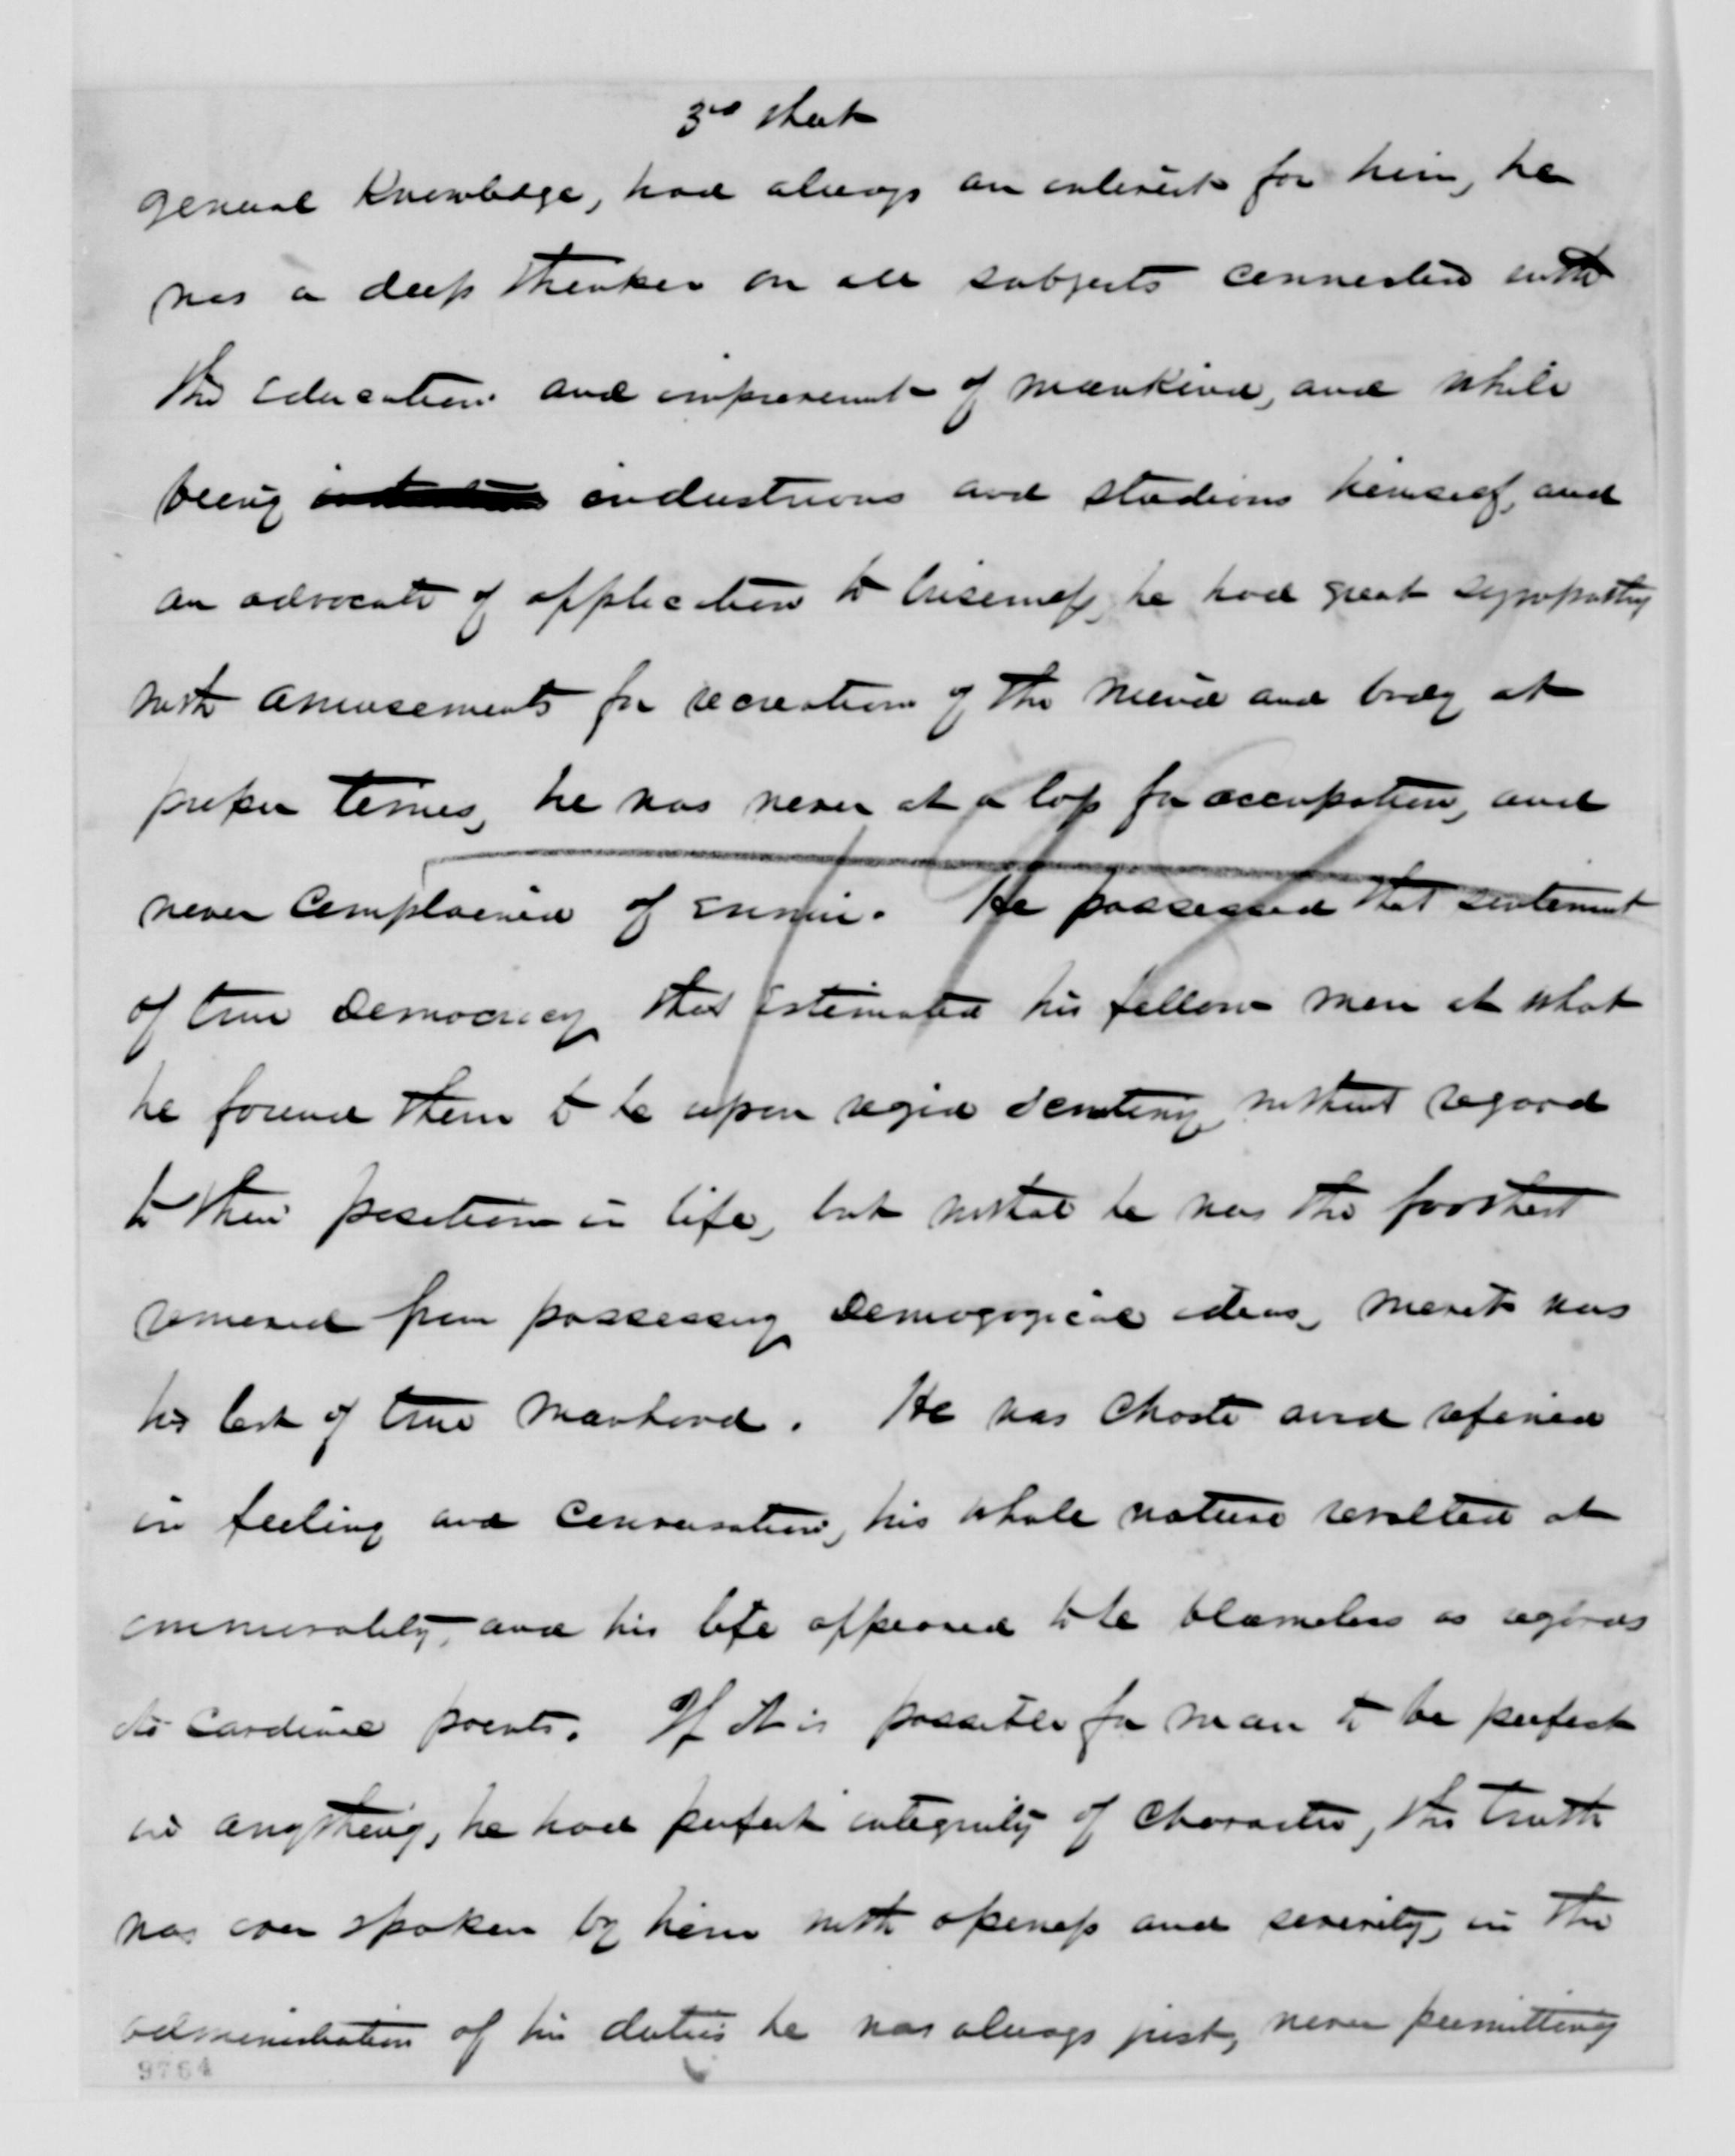 3rd sheet
general Knowledge, had always an interest for him, he
was a deep thinker on all subjects connected with
the education and improvement of mankind, and while
being industrious and studious himself, and
an advocate of application to business, he had great sympathy
with amusements for recreation of the mind and body at
proper times, he was never at a loss for occupation, and
never complained of ennui. He possessed that sentiment
of true Democracy that estimated his fellow men at what
he found them to be upon rigid scrutiny, without regard
to their position in life, but withal he was the farthest
removed from possessing Demogogical ideas, merit was
his test of true manhood. He was chaste and refined
in feeling and conversation, his whole nature revolted at
immorality, and his life appeared to be blameless as regards
its cardinal points. If it is possible for man to be perfect
in anything, he had perfect integrity of character, the truth
was ever spoken by him with openness and severity, in the
administration of his duties he was always just, never permitting
9764